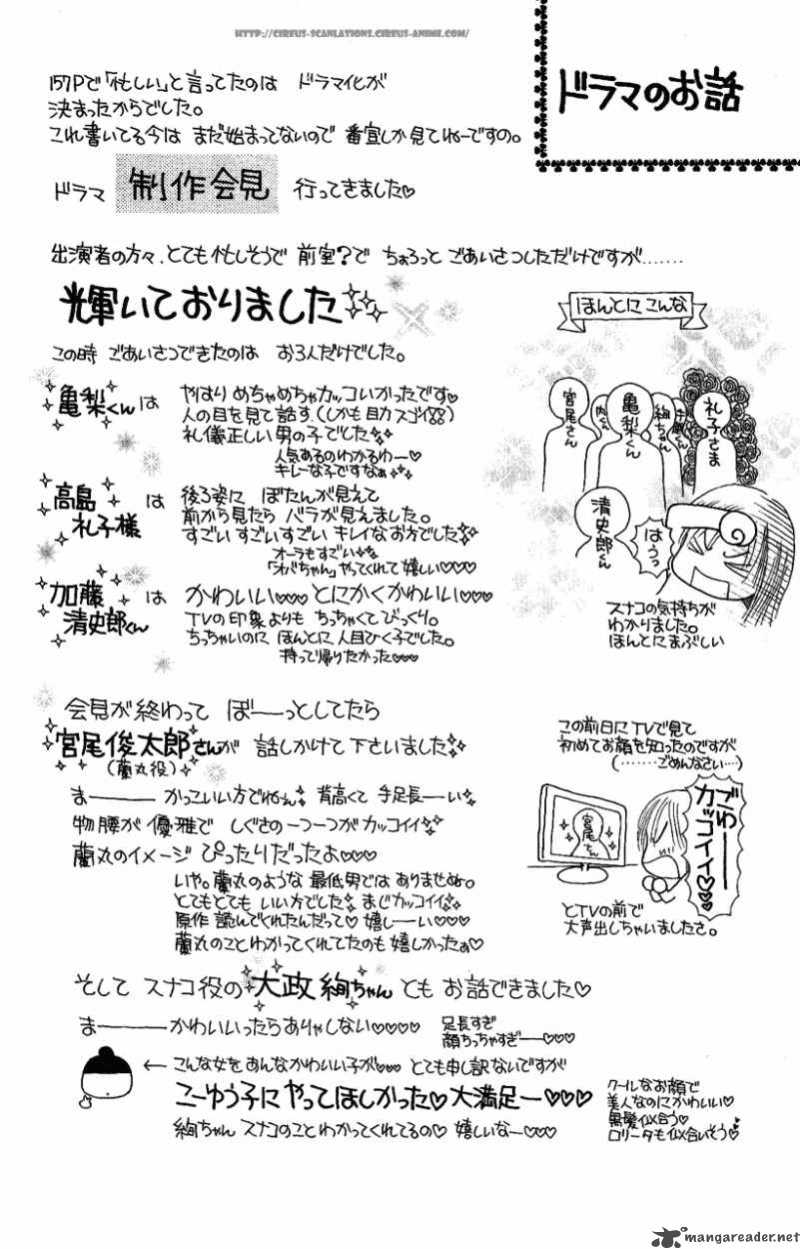 HTTP://CIRCUS-SCANLATIONS.CIRCUS-ANIME.COM/
ドラマのお話
157Pで「忙しい」と言ってたのは ドラマ化が
決まったからでした。
これ書いてる今は まだ始まってないので 番宣しか見てねーですの。
ドラマ 制作会見 行ってきました♡
出演者の方々、とても忙しそうで 前室?で ちょろっと ごあいさつしただけですが……
輝いておりました
この時 ごあいさつできたのは お3人だけでした。
亀梨くんは やはり めちゃめちゃカッコいかったです♡
人の目を見て話す(しかも目力スゴイ)
礼儀正しい男の子でした
人気あるのわかるわー♡
キレーな子ですなぁ
高島礼子様は 後ろ姿に ぼたんが見えて
前から見たら バラが見えました。
すごい すごい すごい キレイなお方でした
オーラもすごい
「オバちゃん」やってくれて嬉しい♡♡♡
加藤清史郎くんは かわいい♡♡♡ とにかくかわいい♡♡♡
TVの印象よりも ちっちゃくてびっくり。
ちっちゃいのに ほんとに人目ひく子でした。
持って帰りたかった♡♡♡
ほんとにこんな
宮尾さん
内くん
亀梨くん
絢ちゃん
手越くん
礼子さま
清史郎くん
はうっ
スナコの気持ちが
わかりました。
ほんとにまぶしい
会見が終わって ぼーーっとしてたら
宮尾俊太郎さんが 話しかけて下さいました
(蘭丸役)
まーーーー かっこいい方でねぇ 背高くて 手足長ーーい
物腰が 優雅で しぐさの一つ一つがカッコイイ
蘭丸のイメージ ぴったりだったよ♡♡♡
いや。蘭丸のような 最低男では ありませぬ。
とてもとても いい方でした まじカッコイイ
原作 読んでくれたんだって♡ 嬉しーい♡♡♡
蘭丸のこと わかってくれてたのも 嬉しかったぁ♡
この前日にTVで見て
初めてお顔を知ったのですが
(……ごめんなさい…)
宮尾さん
ブわーー
カッコイイ♡♡
とTVの前で
大声出しちゃいましたさ。
そして スナコ役の 大政絢ちゃん とも お話できました♡
まーーーー かわいいったらありゃしない♡♡♡♡
足長すぎ
顔ちっちゃすぎー♡♡♡
← こんな女を あんなかわいい子が♡♡♡ とても申し訳ないですが
こーゆう子に やってほしかった♡ 大満足ー♡♡♡
絢ちゃん スナコのこと わかってくれてるの♡ 嬉しいなー♡♡♡
クールなお顔で
美人なのにかわいい♡
黒髪似合う♡
ロリータも似合いそう♡
mangareader.net